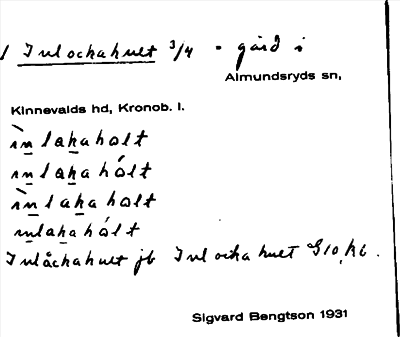 1 Inlockahult 3/4 • gård i
Almundsryds sn,
Kinnevalds hd, Kronob. l.
ìnlakahalt
inlakahólt
ìnlakahalt
inlakahólt
Inlåckahult jb Inlockahult
Sigvard Bengtson 1931